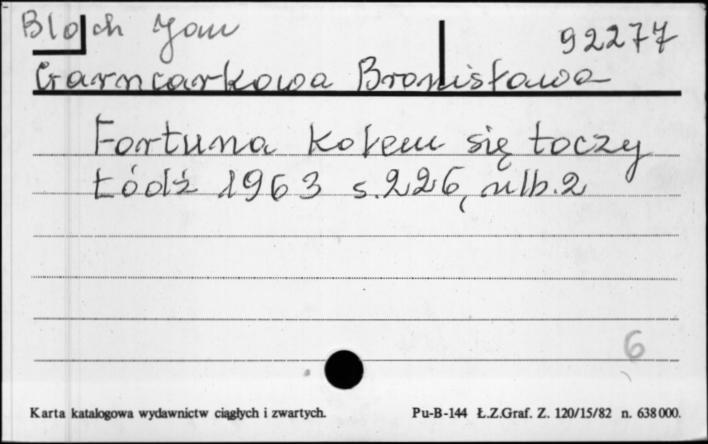 Bloch Jan 92277
Garncarkowa Bronisława
Fortuna kołem się toczy
Łódź 1963 s.226, nlb.2
6
Karta katalogowa wydawnictw ciągłych i zwartych. Pu-B-144 Ł.Z.Graf. Z. 120/15/82 n. 638000.